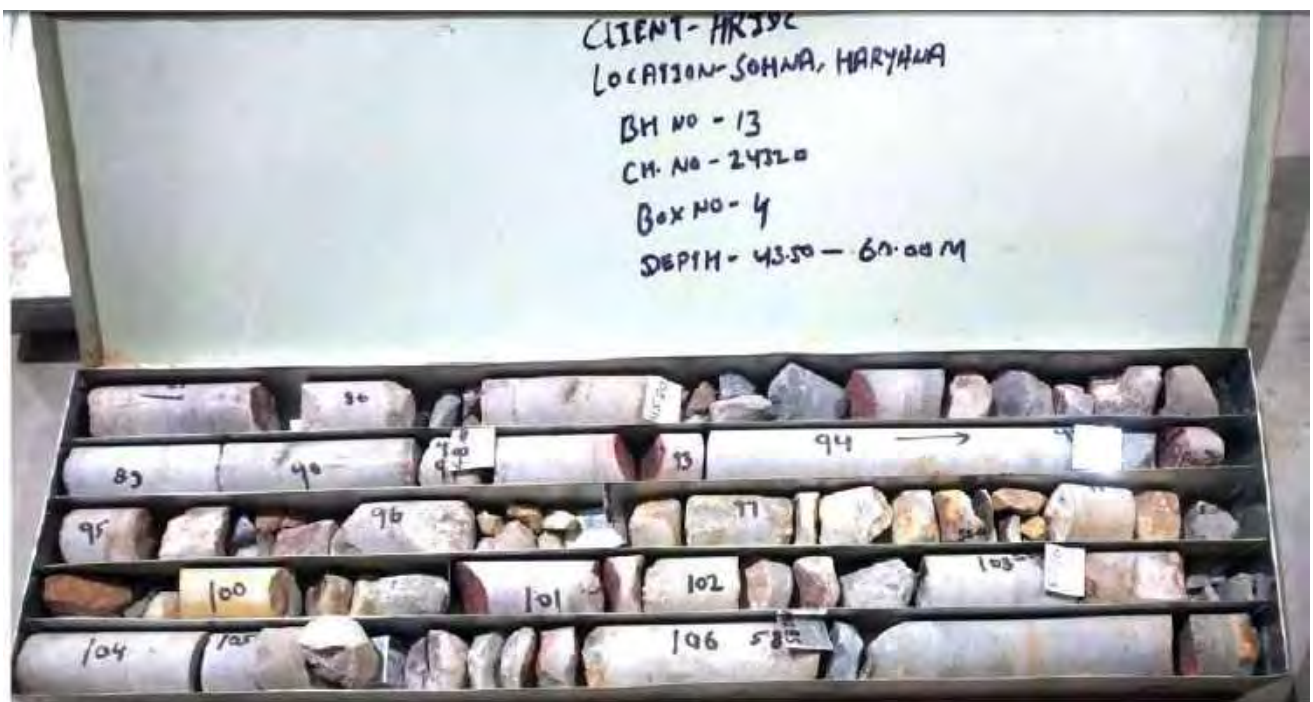 CLIENT- HRIDC
LOCATION- SOHNA, HARYANA
BH NO - 13
CH. NO - 24320
BOX NO - 4
DEPTH - 43.50 - 60.00M
86
89 90 93 94 →
95 96 97
100 101 102 103
104 105 106 58